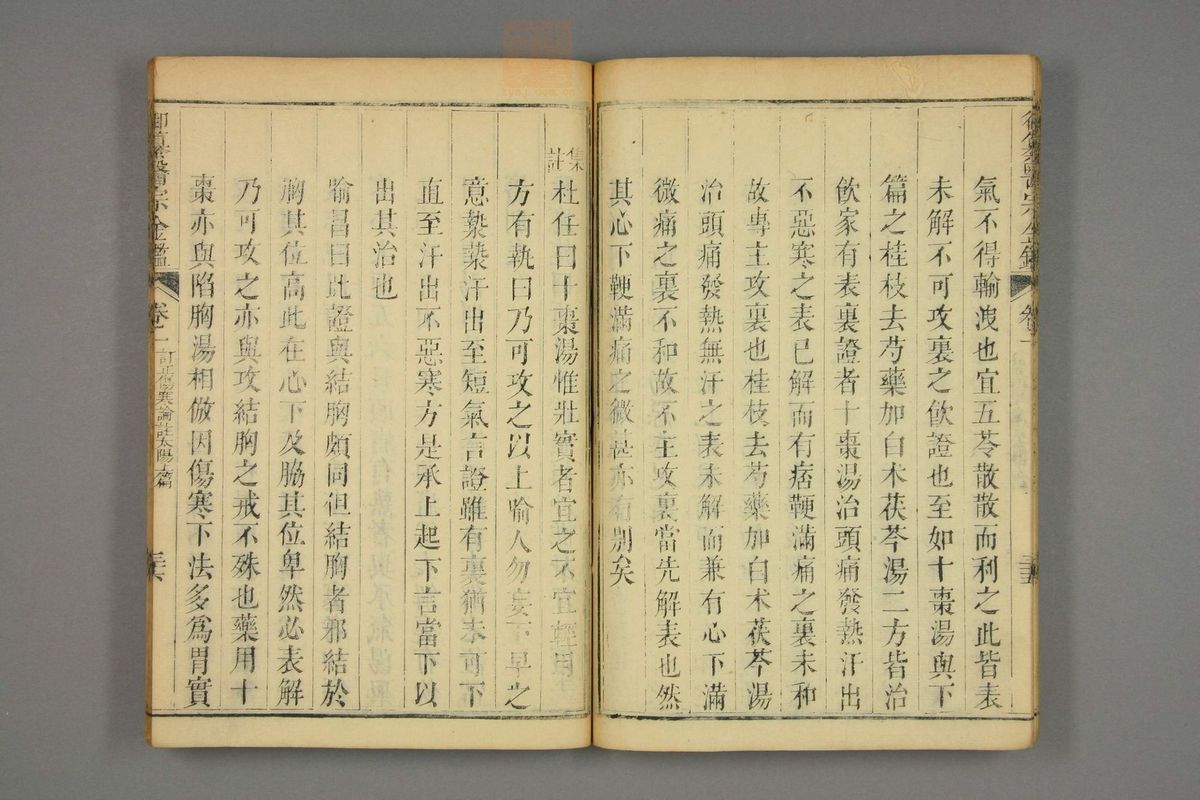 氣不得輸洩也宜五苓散散而利之此皆表
未解不可攻裏之飲證也至如十棗湯與下
篇之桂枝去芍藥加白朮茯苓湯二方皆治
飲家有表裏證者十棗湯治頭痛發熱汗出
不惡寒之表已解而有痞鞕滿痛之裏未和
故專主攻裏也桂枝去芍藥加白朮茯苓湯
治頭痛發熱無汗之表未解而兼有心下滿
微痛之裏不和故不主攻裏當先解表也然
其心下鞕滿痛之微甚亦有別矣
集註
杜任曰十棗湯惟壯實者宜之不宜輕用
方有執曰乃可攻之以上喻人勿妄下早之
意漐漐汗出至短氣言證雖有裏猶未可下
直至汗出不惡寒方是承上起下言當下以
出其治也
喻昌曰此證與結胸頗同但結胸者邪結於
胸其位高此在心下及脇其位卑然必表解
乃可攻之亦與攻結胸之戒不殊也藥用十
棗亦與陷胸湯相倣因傷寒下法多爲胃實
御纂醫宗金鑑
卷二
訂正傷寒論註太陽上篇
三十六